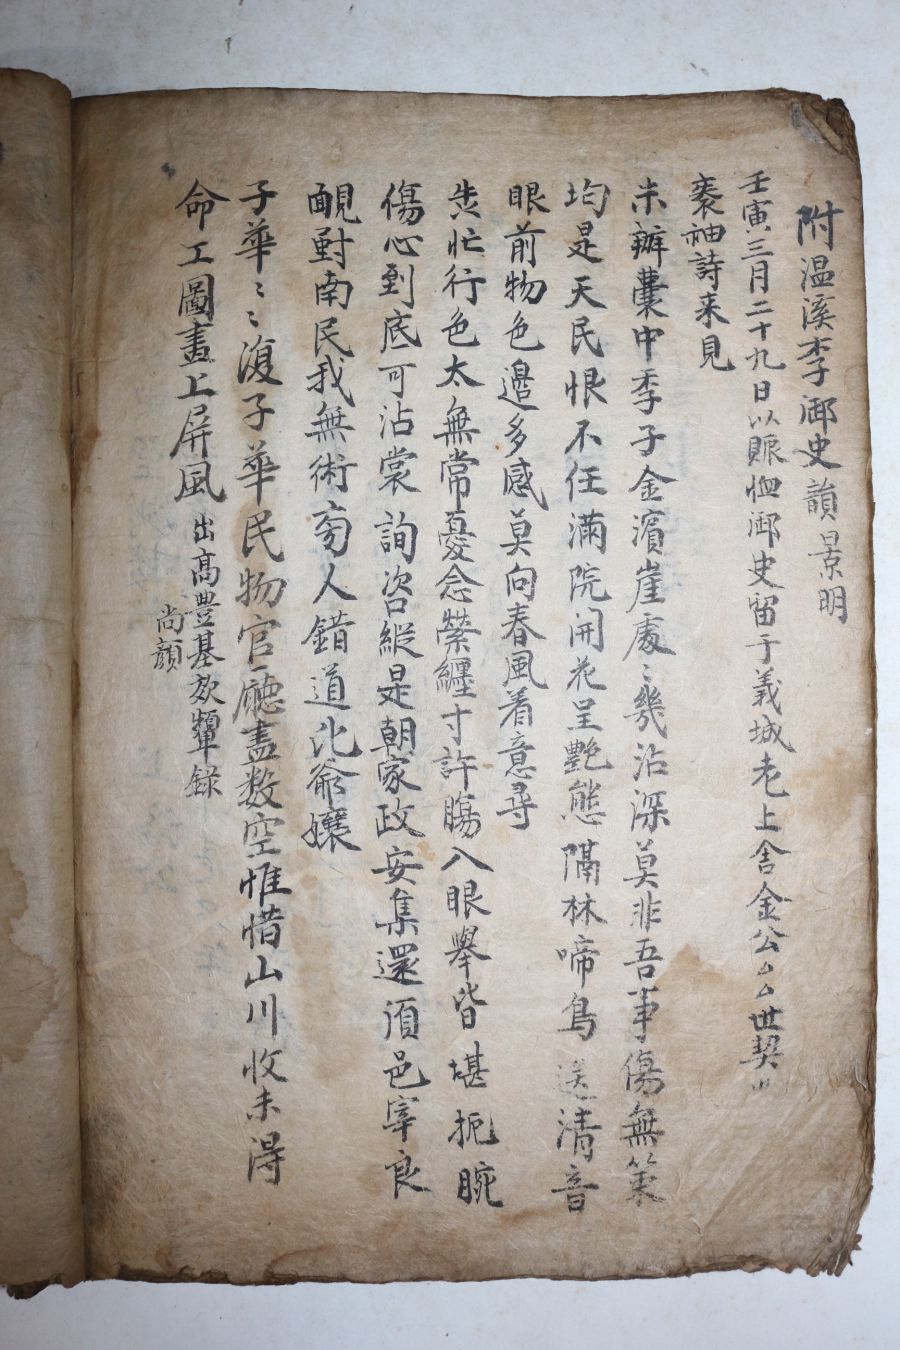 附温溪李御史韻 景明
壬寅三月二十九日以賑恤御史留于義城老上舍金公公世契也
袖詩来見
未辦囊中季子金濱崖處〻幾沾深莫非吾事傷無策
均是天民恨不任滿院開花呈艶態隔林啼鳥送清音
眼前物色邉多感莫向春風着意尋
告忙行色太無常憂念縈纏寸許腸入眼舉皆堪扼腕
傷心到底可沾裳詢咨縦是朝家政安集還湏邑宰良
靦對南民我無術旁人錯道化爺孃
子華〻〻復子華民物官廳盡数空惟惜山川收未淂
命工圖畫上屏風 出高豊基效顰錄
尚顔